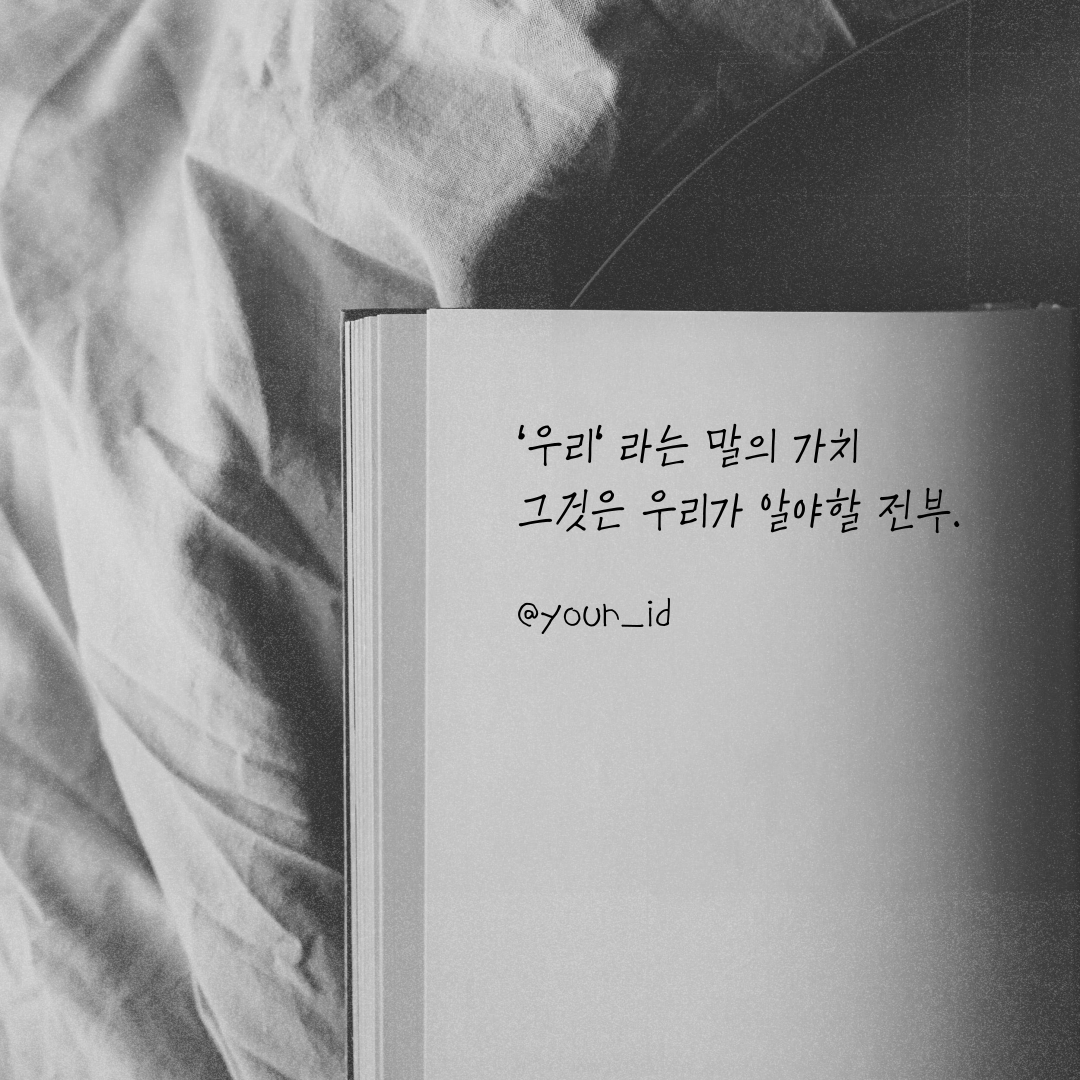 ‘우리‘ 라는 말의 가치
그것은 우리가 알야할 전부.
@your_id